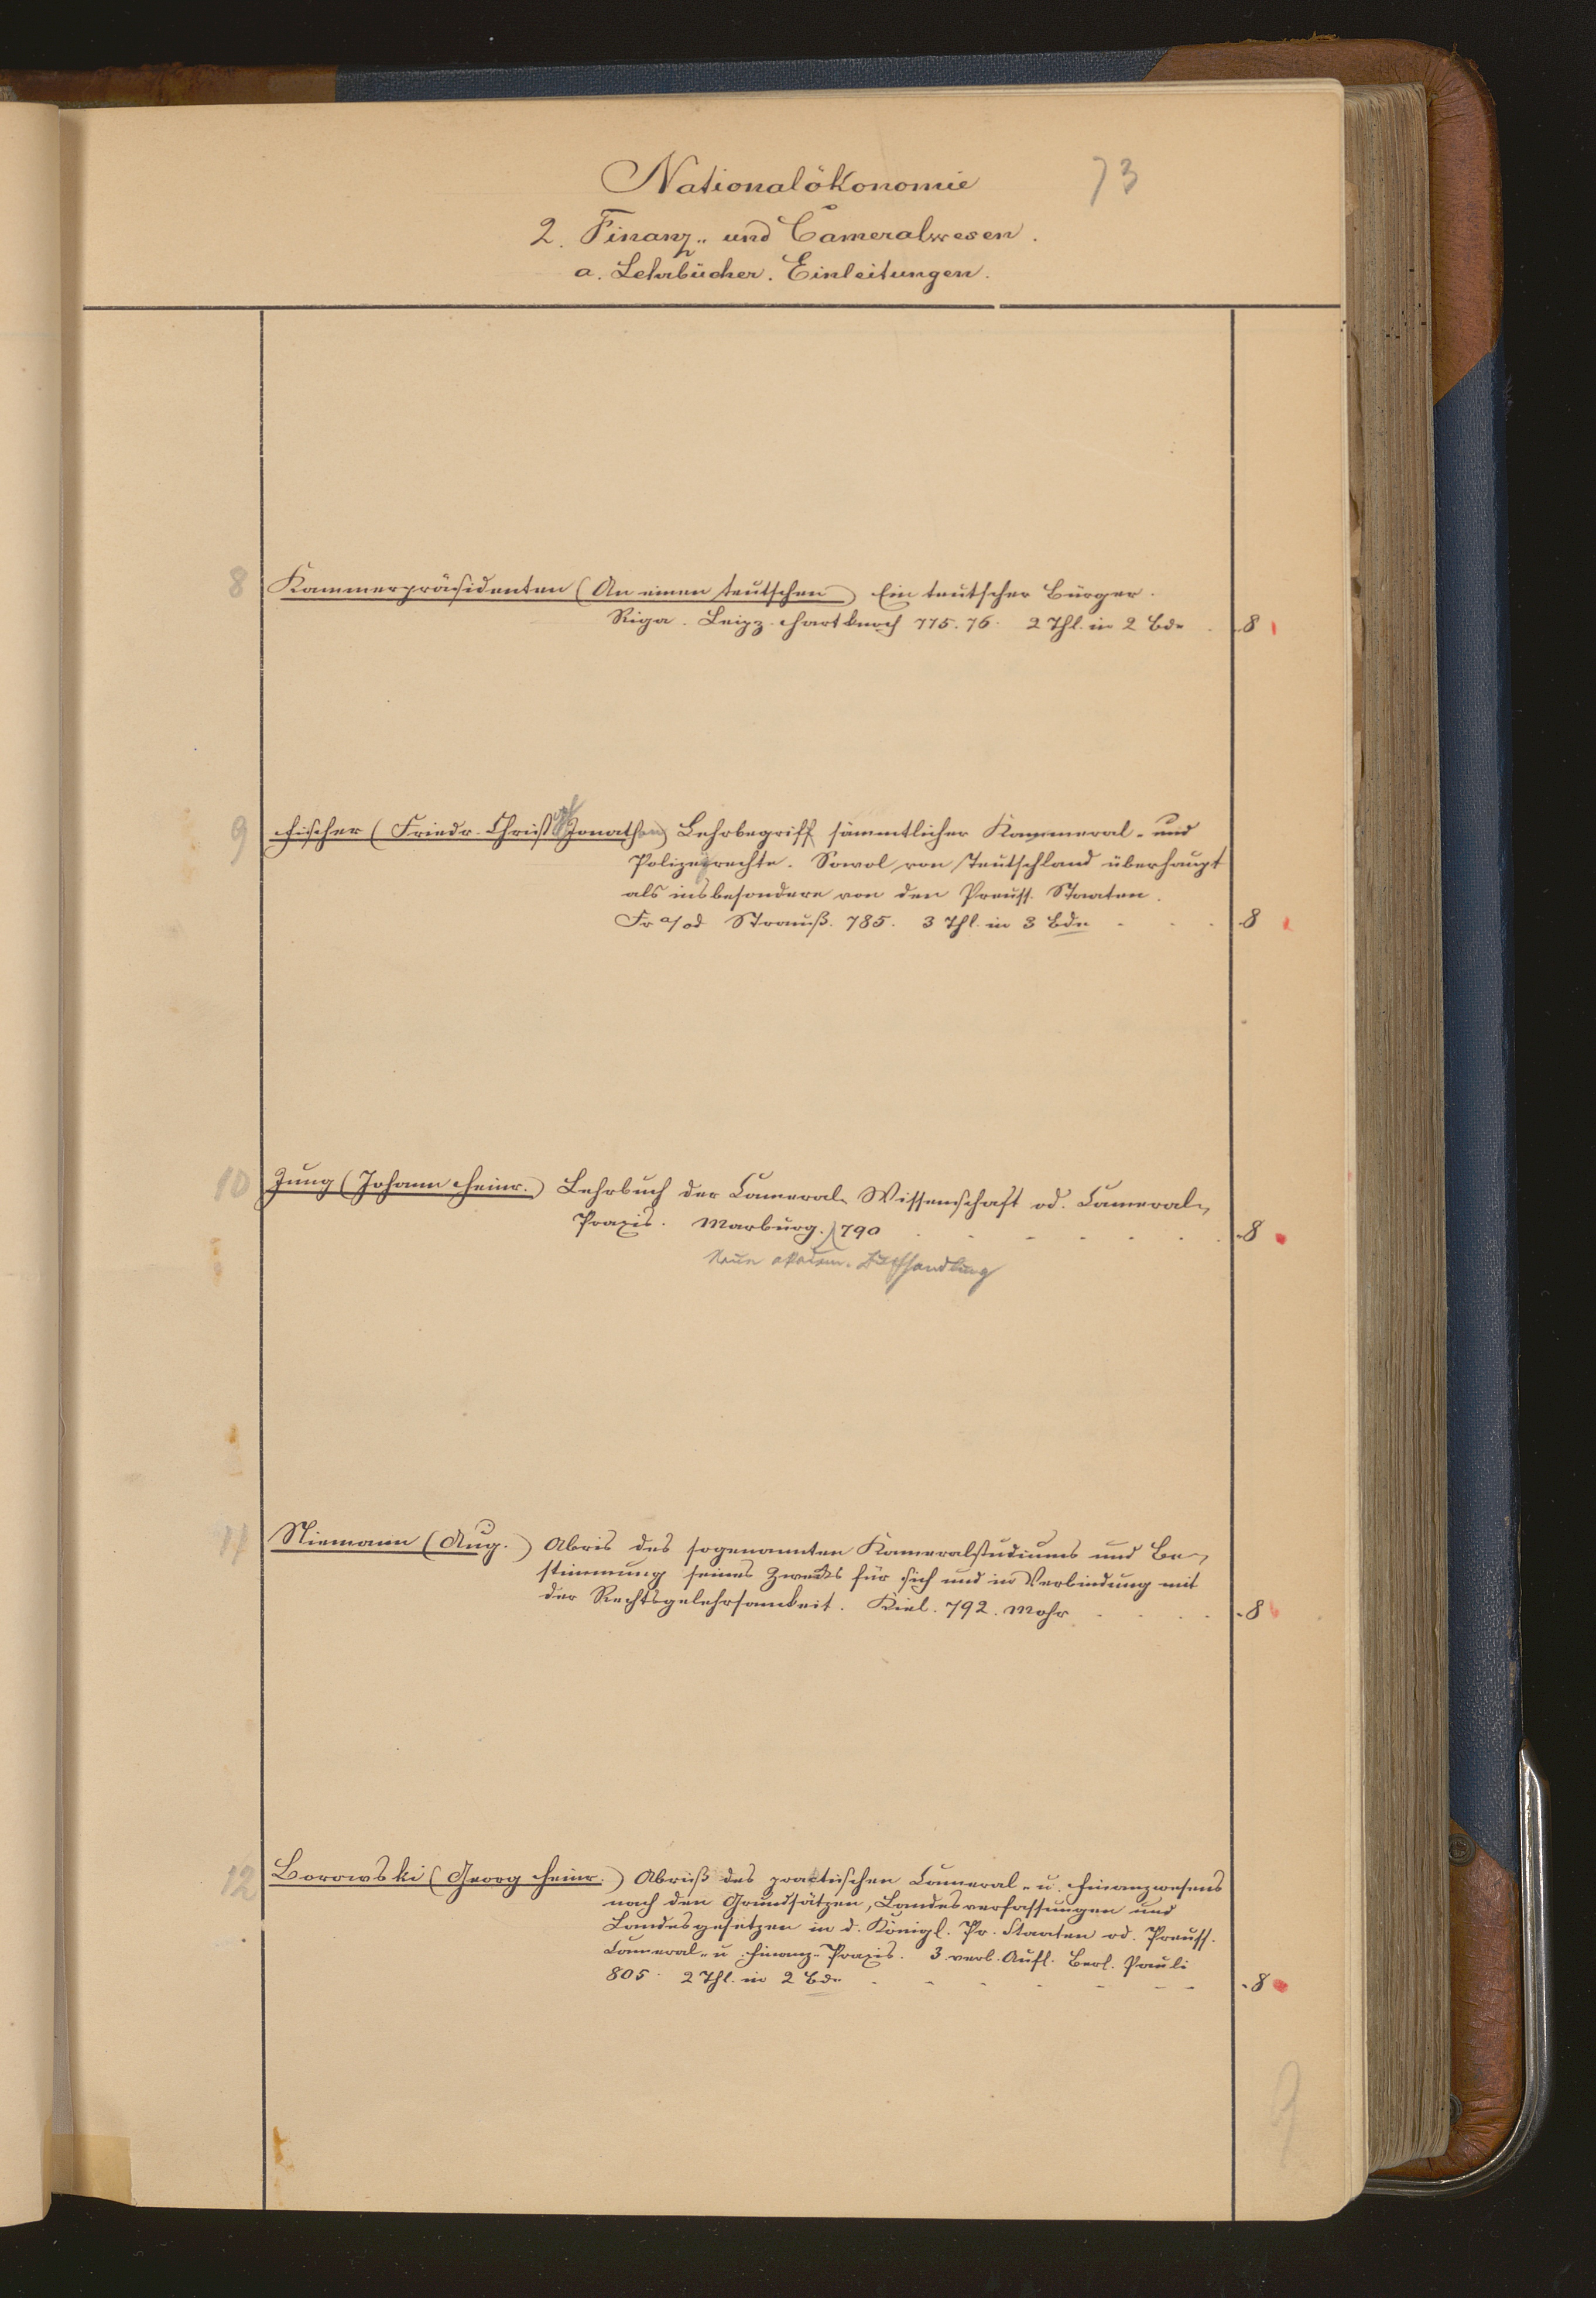 Nationalökonomie 73
2. Finanz- und Cameralwesen.
a. Lehrbücher. Einleitungen.
8 Kammerpräsidenten (An einen teutschen) Ein teutscher Bürger.
Riga. Leipz. Hartknoch 775.76. 2 Thl. in 2 Bdn . 8
9 Fischer (Friedr. Christoph Jonathan) Lehrbegriff sämmtlicher Kammeral- und
Polizeyrechte. Sowol von Teutschland überhaupt
als insbesondere von den Preuss. Staaten.
Fr a/od Strauß. 785. 3 Thl. in 3 Bdn . . . 8
10 Jung (Johann Heinr.) Lehrbuch der Cameral-Wissenschaft od. Cameral-
Praxis. Marburg. 790 . . . . . . . 8
Neue akadem. Buchhandlung
11 Niemann (Aug.) Abris des sogenannten Kameralstudiums und Be-
stimmung seines Zwecks für sich und in Verbindung mit
der Rechtsgelehrsamkeit. Kiel. 792. Mohr . . . . 8
12 Borowski (Georg Heinr.) Abriß des practischen Cameral- u. Finanzwesens
nach den Grundsätzen, Landesverfassungen und
Landesgesetzen in d. Königl. Pr. Staaten od. Preuss.
Cameral- u. Finanz-Praxis. 3. verb. Aufl. Berl. Pauli
805. 2 Thl. in 2 Bdn - - - - - - - 8